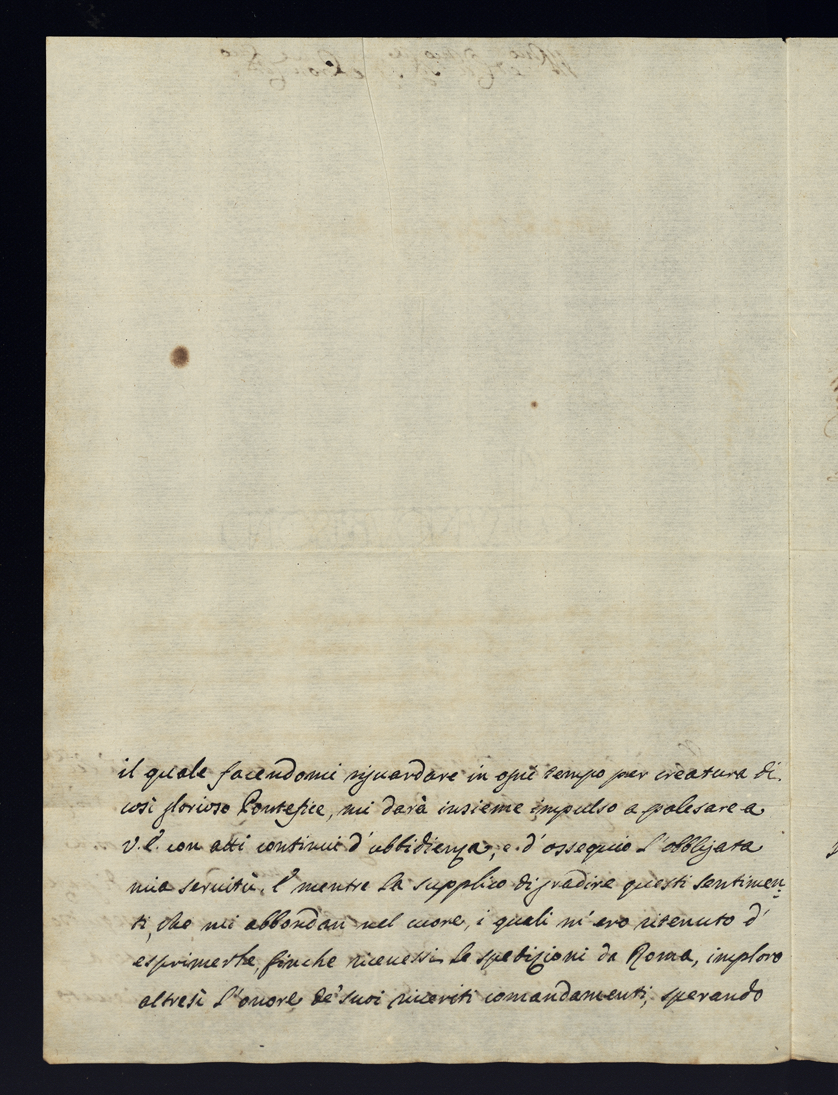 il quale facendomi riguardare in ogni tempo per creatura di
così glorioso Pontefice, mi darà insieme impulso a palesare a
V. E. con atti continui d'ubbidienza, e d'ossequio l'obbligata
mia servitù. E mentre la supplico di gradire questi sentimen-
ti, che mi abbondan nel cuore, i quali m'ero ritenuto d'
esprimerle finche ricevessi le spedizioni da Roma, imploro
altresì l'onore de' suoi riveriti comandamenti, sperando